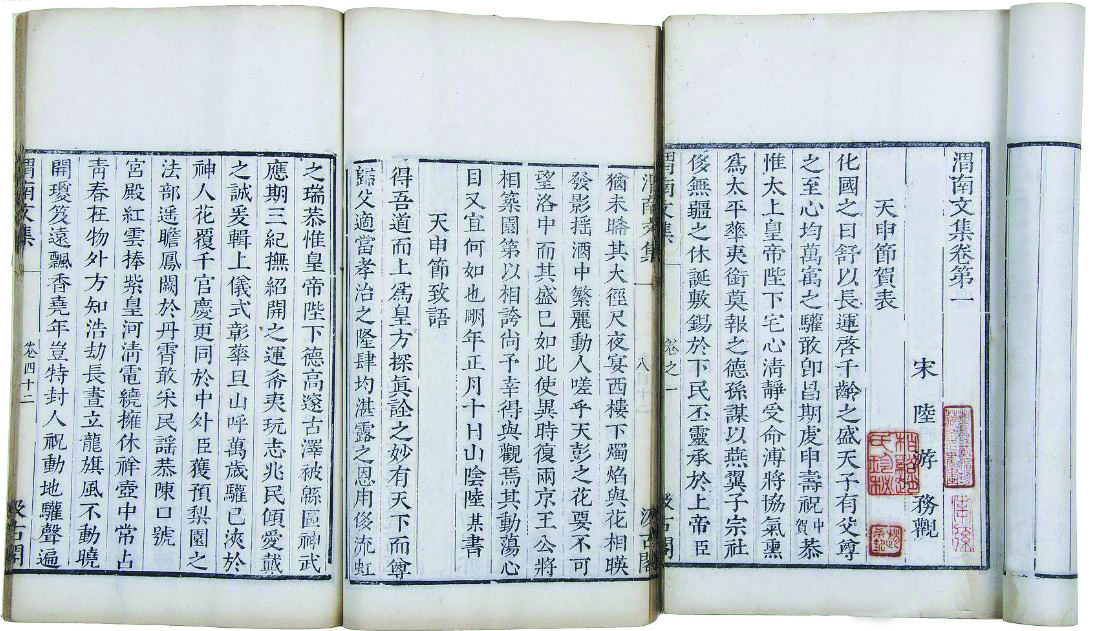 渭南文集卷第一
宋陸游務觀
天申節賀表
化國之日舒以長運啓千齡之盛天子有父尊
之至心均萬㝢之驩敢卽昌期虔申壽祝中賀恭
惟太上皇帝陛下宅心淸靜受命溥將協氣熏
爲太平華夷銜莫報之德孫謀以燕翼子宗社
侈無疆之休誕敷錫於下民丕靈承於上帝臣
渭南文集
卷之一
汲古閣
渭南文集
汲古閣
猶未晞其大徑尺夜宴西樓下燭焰與花相暎
發影搖酒中繁麗動人嗟乎天彭之花要不可
望洛中而其盛已如此使異時復兩京王公將
相築園第以相誇尙予幸得與觀焉其動蕩心
目又宜何如也明年正月十日山陰陸某書
天申節致語
得吾道而上爲皇方探眞詮之妙有天下而尊
歸父適當孝治之隆肆均湛露之恩用侈流虹
之瑞恭惟皇帝陛下德高邃古澤被緜區神武
應期三紀撫紹開之運希夷玩志兆民傾愛戴
之誠爰輯上儀式彰華旦山呼萬歲驩已浹於
神人花覆千官慶更同於中外臣獲預梨園之
法部遥瞻鳳闕於丹霄敢采民謠恭陳口號
宮殿紅雲捧紫皇河淸電繞擁休祥壺中常占
靑春在物外方知浩劫長晝立龍旗風不動曉
開瓊笈遠飄香堯年豈特封人祝動地驩聲遍
渭南文集
卷四十二
汲古閣